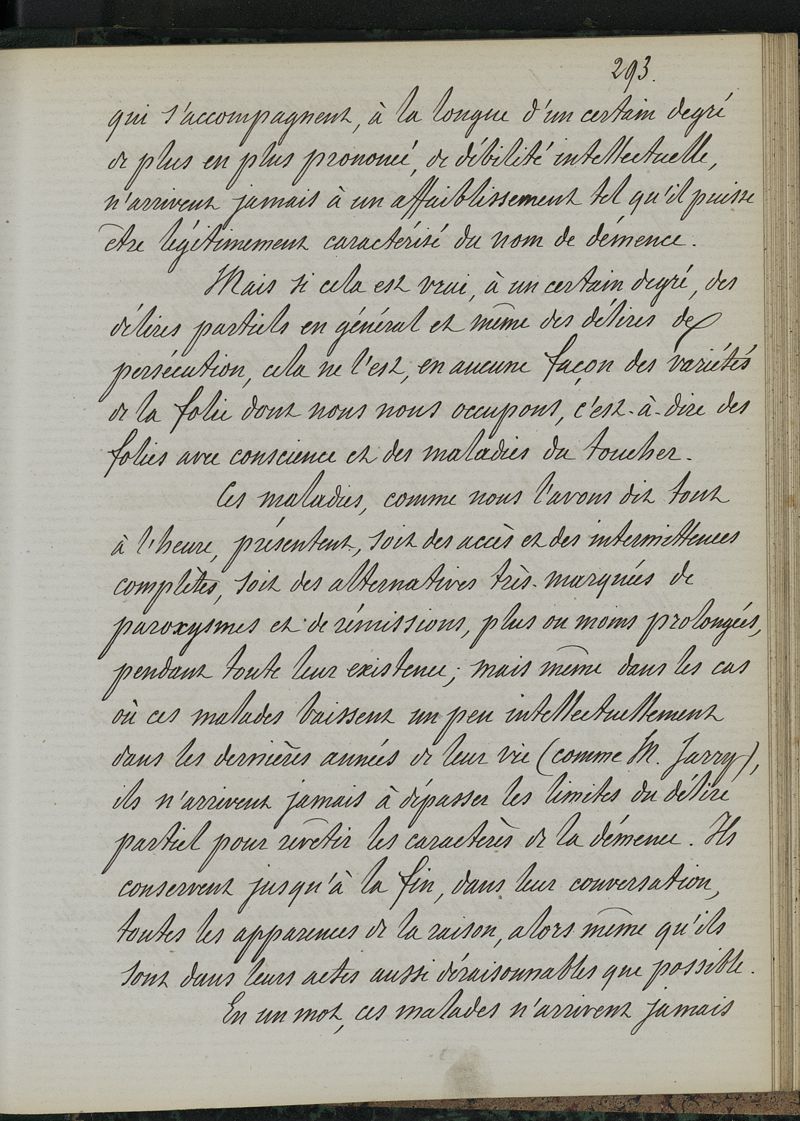 293.
qui s'accompagnent, à la longue d'un certain degré
de plus en plus prononcé, de débilité intellectuelle,
n'arrivent jamais à un affaiblissement tel qu'il puisse
être légitimement caractérisé du nom de démence.
Mais si cela est vrai, à un certain degré, des
délires partiels en général et même des délires de
persécution, cela ne l'est, en aucune façon des variétés
de la folie dont nous nous occupons, c'est-à-dire des
folies avec conscience et des maladies du toucher.
Ces maladies, comme nous l'avons dit tout
à l'heure, présentent, soit des accès et des intermittences
complètes, soit des alternatives très-marquées de
paroxysmes et de rémissions, plus ou moins prolongées,
pendant toute leur existence; mais même dans les cas
où ces malades baissent un peu intellectuellement
dans les dernières années de leur vie (comme M. Jarry),
ils n'arrivent jamais à dépasser les limites du délire
partiel pour revêtir les caractères de la démence. Ils
conservent jusqu'à la fin, dans leur conversation,
toutes les apparences de la raison, alors même qu'ils
sont dans leurs actes aussi déraisonnables que possible.
En un mot, ces malades n'arrivent jamais